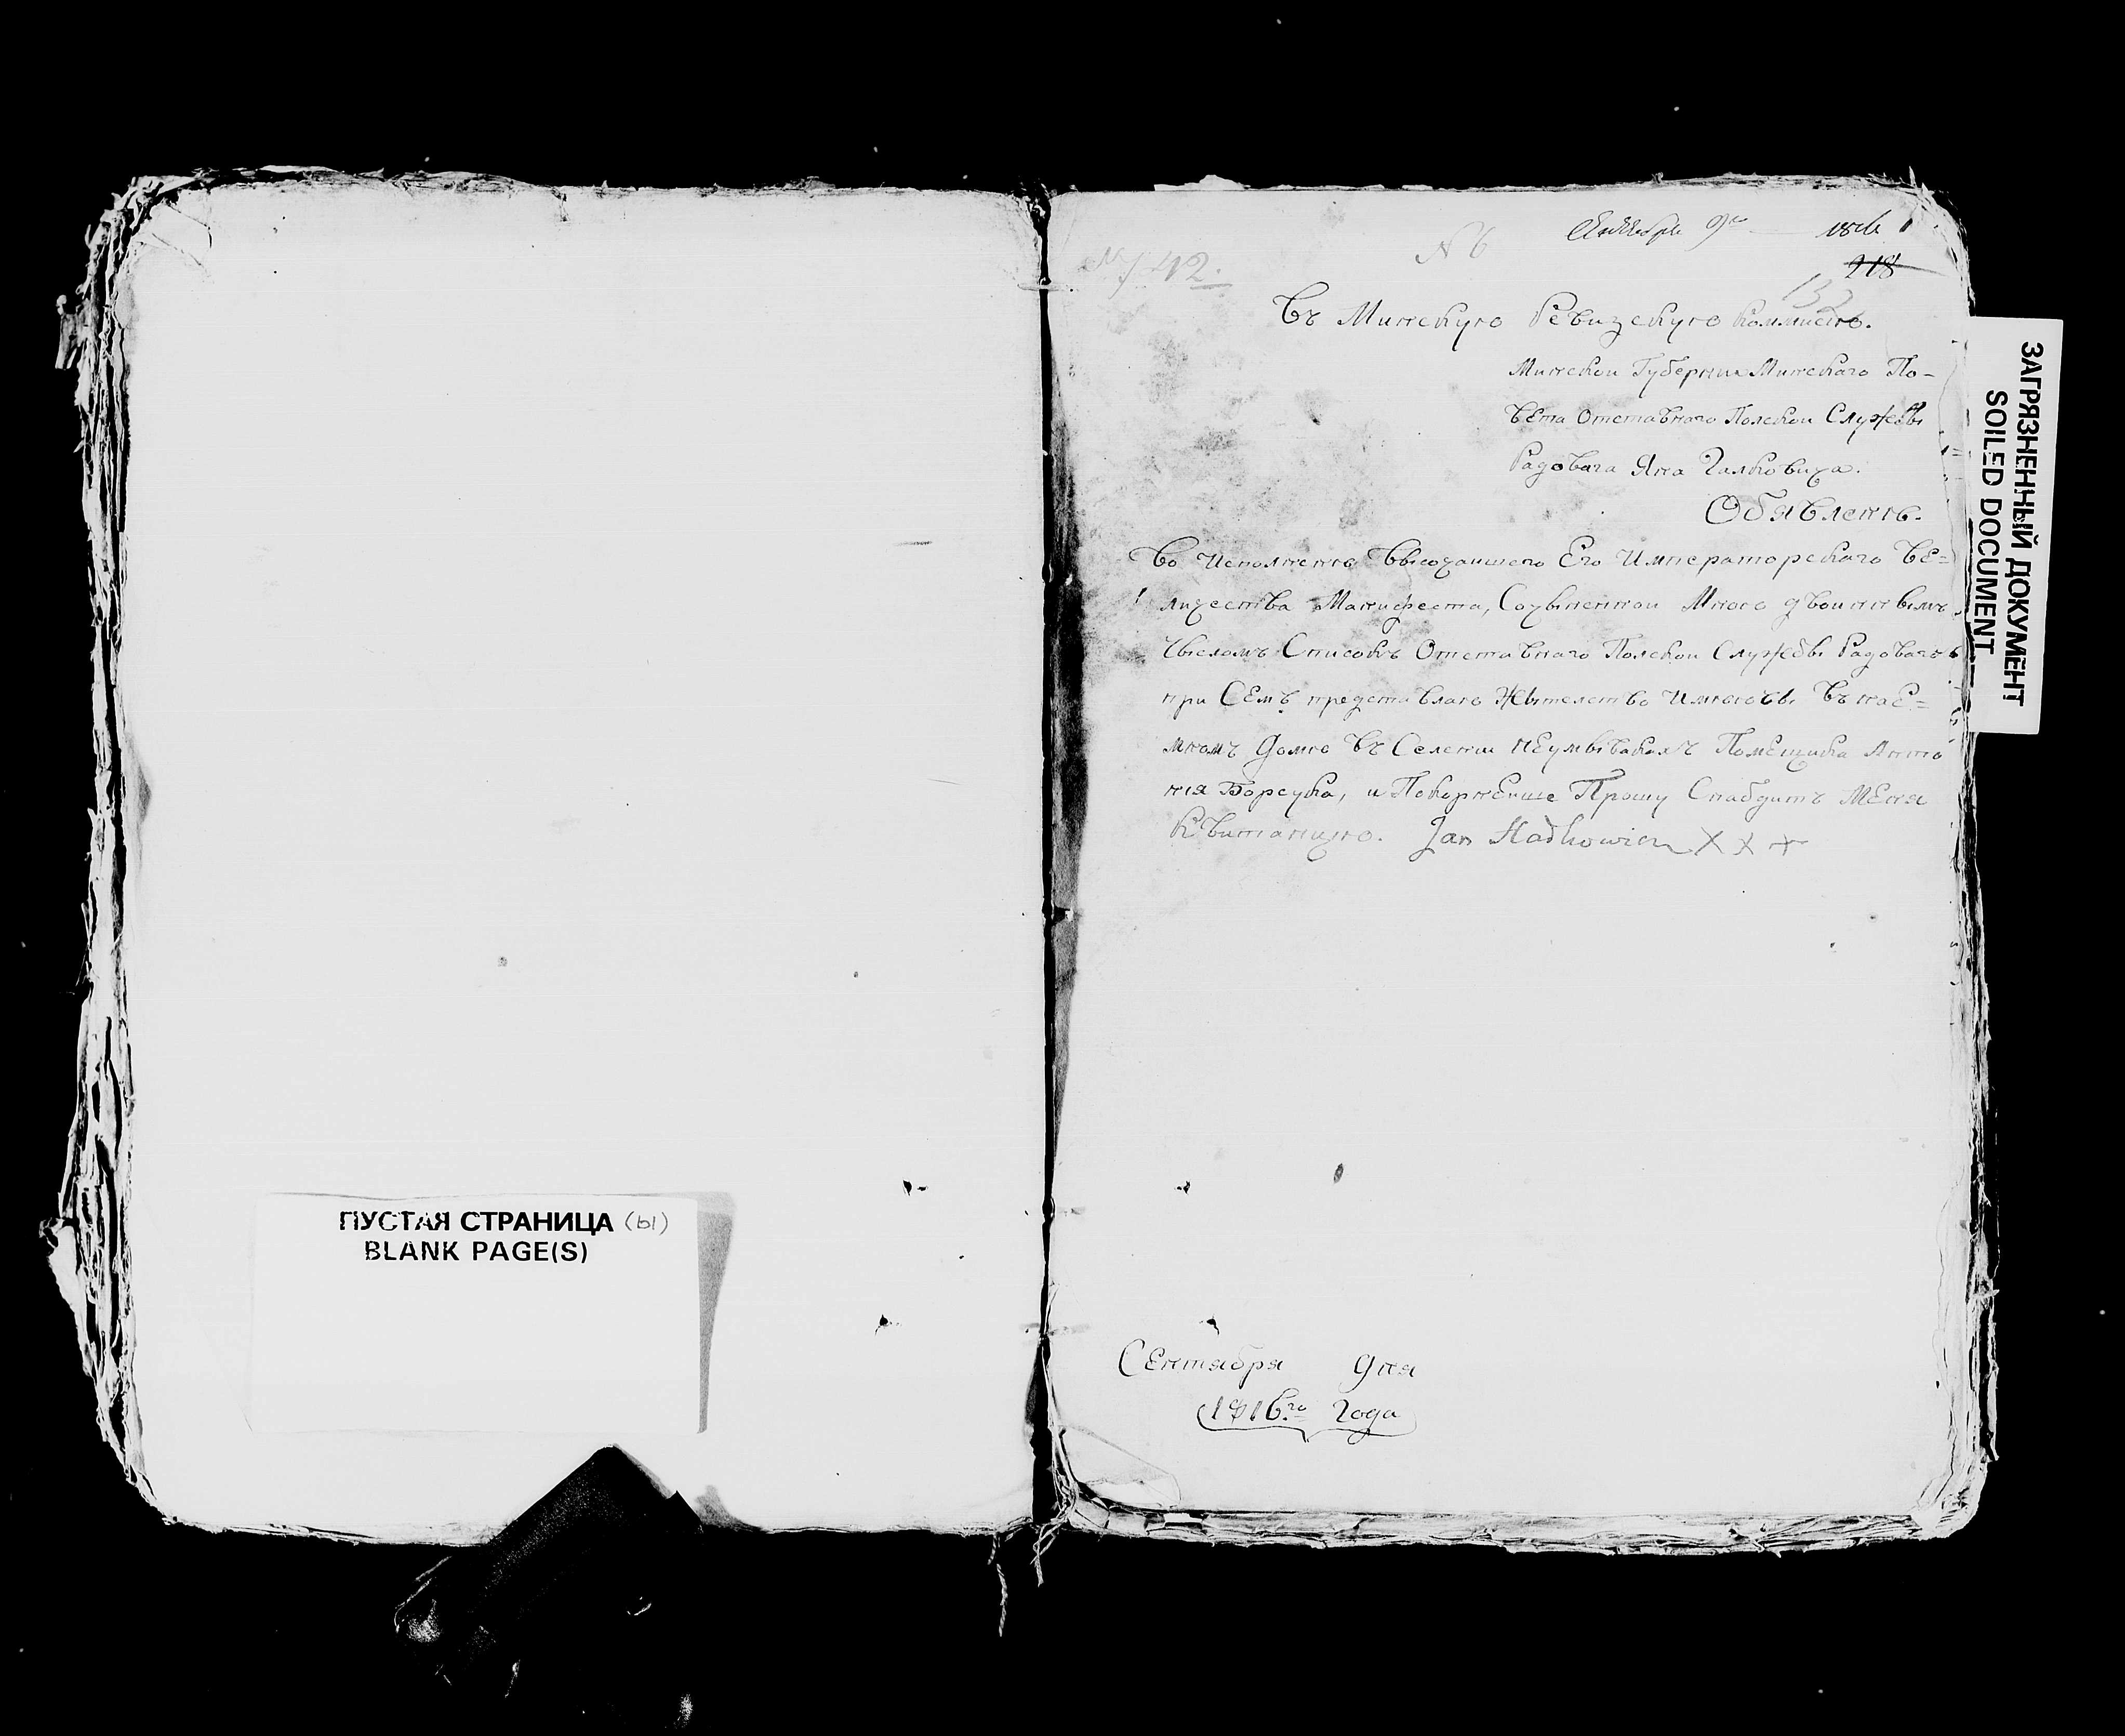 ПУСТАЯ СТРАНИЦА (ы)
BLANK PAGE(S)
N 6
Сентября 9го 1816
№ 142.
218
132
Въ Минскую Ревизскую Коммисію.
Минской Губерніи Минскаго По-
вета Отставнаго Полской Службы
Радоваго Яна Галковича.
Обявленіе.
Во Исполненіе Высочаишего Его Императорскаго Ве=
личества Манифеста, Сочыненнои Мною двоинным
Чыслом Списокъ Отставнаго Полской Службы Радоваго
при Семъ представлаю Жытелство Имеювы въ нае=
мномъ Доме въ Селеніи Помещика Анто
нія Борсука, и Покорнейше Прошу Снабдить Меня
Квитанціею. Jan Hadkowicz X X +
Сентября дня
1816го Года
ЗАГРЯЗНЕННЫЙ ДОКУМЕНТ
SOILED DOCUMENT